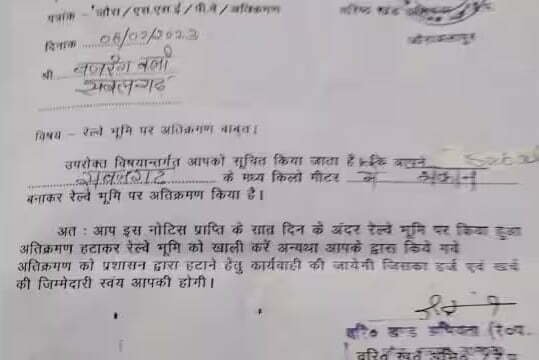 पत्रांक - जौरा/एस.एस.ई/पी.वे/अतिक्रमण
वरिष्ठ खण्ड
दिनांक 08/02/2023
जौराअलापुर
श्री बजरंग बली
सबलगढ़
विषय - रेल्वे भूमि पर अतिक्रमण बाबत।
उपरोक्त विषयान्तर्गत आपको सूचित किया जाता है कि आपने
सबलगढ़ के मध्य किलो मीटर में मकान
बनाकर रेल्वे भूमि पर अतिक्रमण किया है।
अत : आप इस नोटिस प्राप्ति के सात दिन के अंदर रेल्वे भूमि पर किया हुआ
अतिक्रमण हटाकर रेल्वे भूमि को खाली करें अन्यथा आपके द्वारा किये गये
अतिक्रमण को प्रशासन द्वारा हटाने हेतु कार्यवाही की जायेगी जिसका हर्ज एवं खर्च
की जिम्मेदारी स्वंय आपकी होगी।
वरि० खण्ड अभियंता (रे०प.